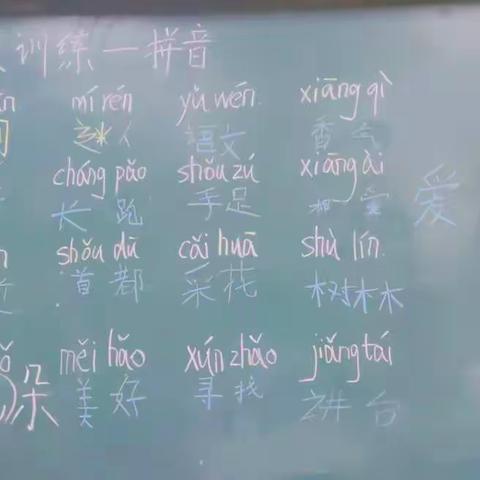 训练一拼音
mí rén yǔ wén xiāng qì
迷人 语文 香气
cháng pǎo shǒu zú xiāng ài
长跑 手足 相爱 爱
shǒu dū cǎi huā shù lín
首都 采花 树林
měi hǎo xún zhǎo jiǎng tái
朵 美好 寻找 讲台